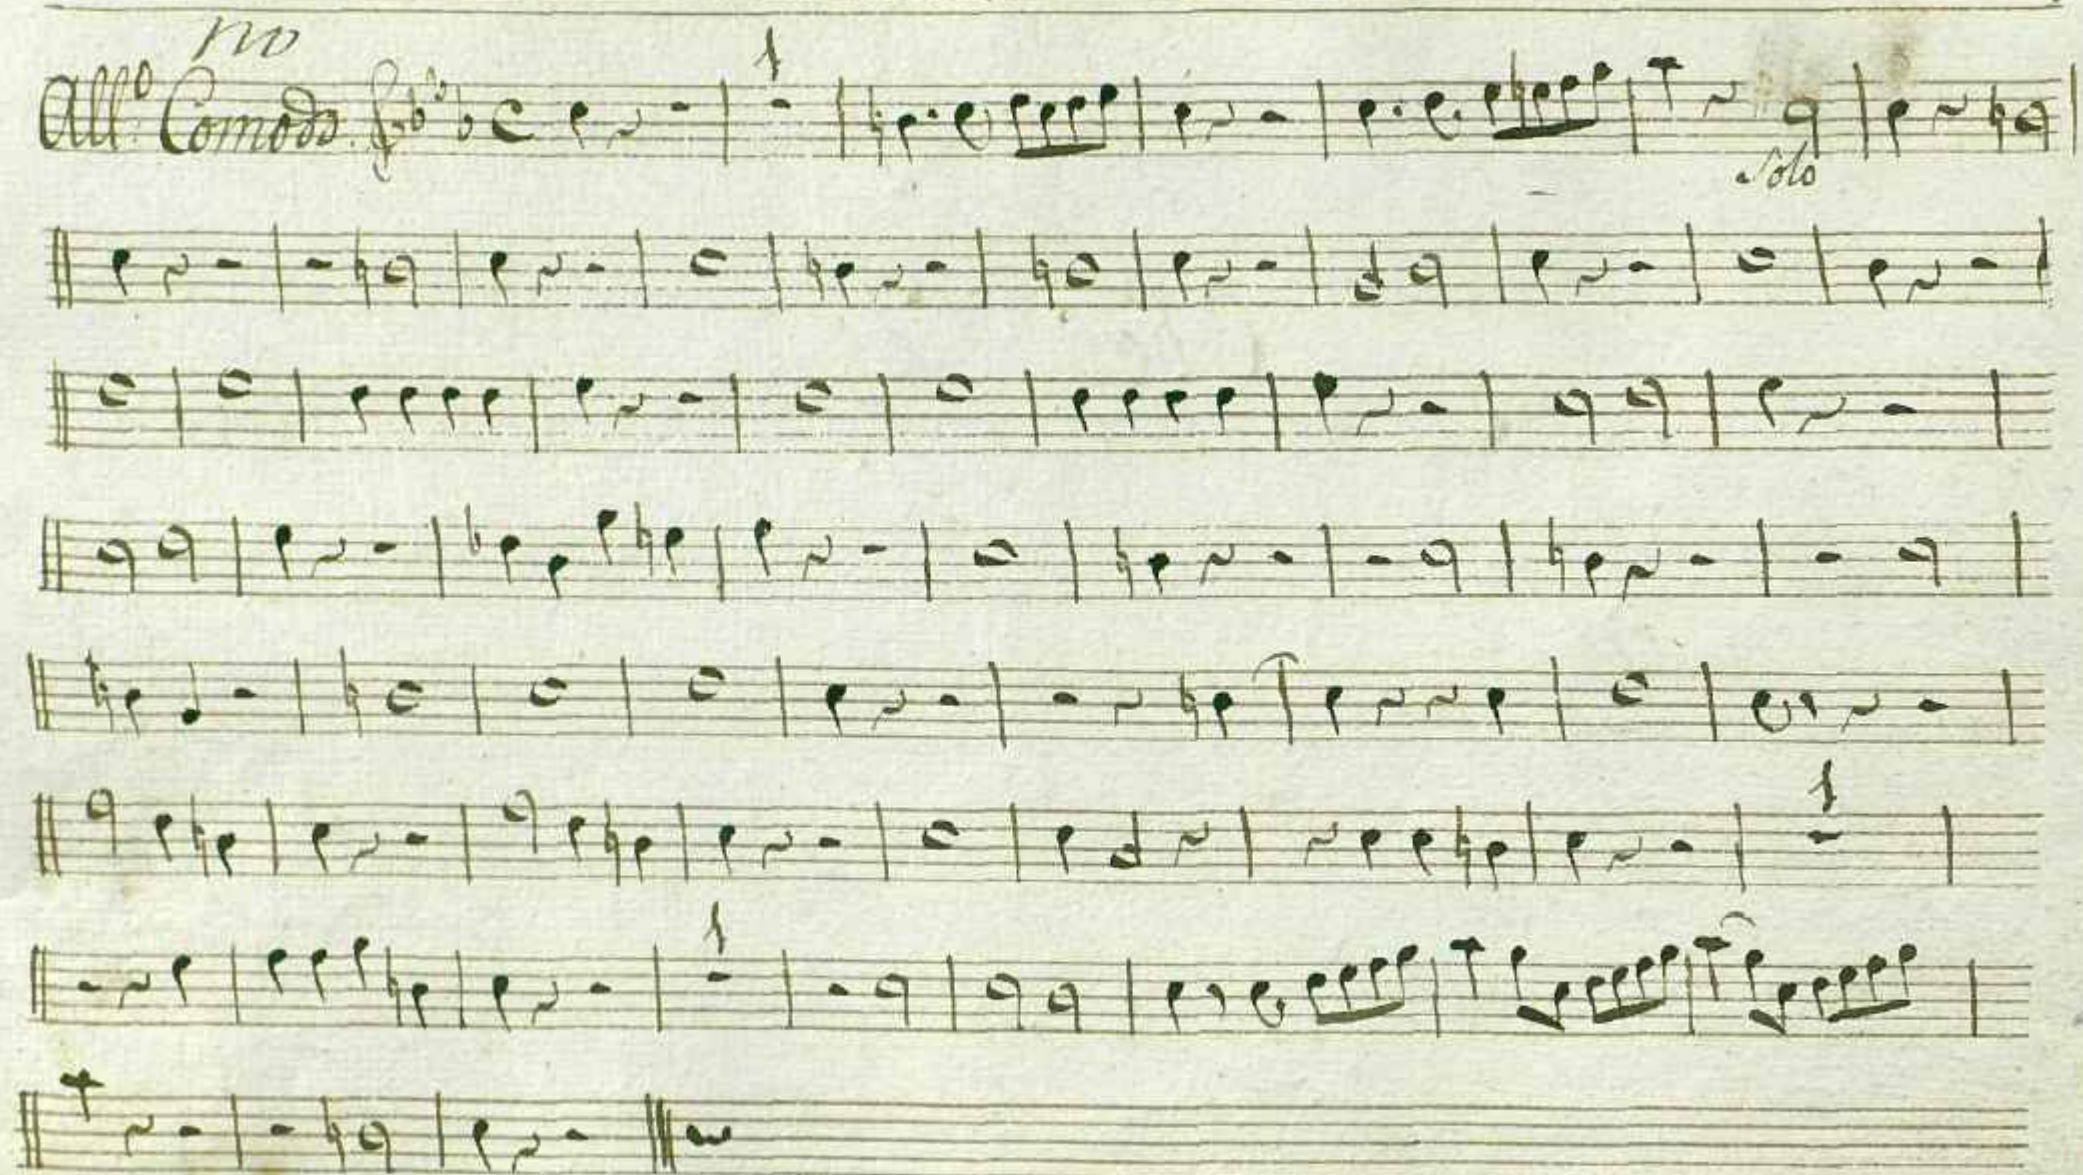 mo
All.o Comodo
1
Solo
1
1